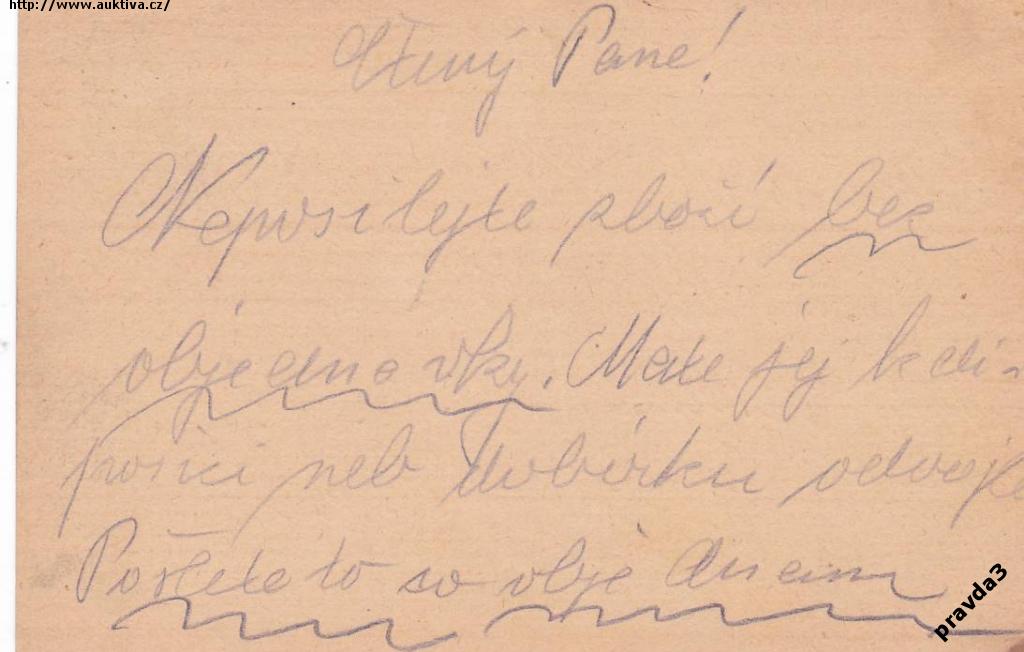 http://www.auktiva.cz/
Ctěný Pane!
Neposilejte zboží bez
objednavky. Mate jej k di-
posici neb Dobírku
Pošlete to co objednam
pravda3